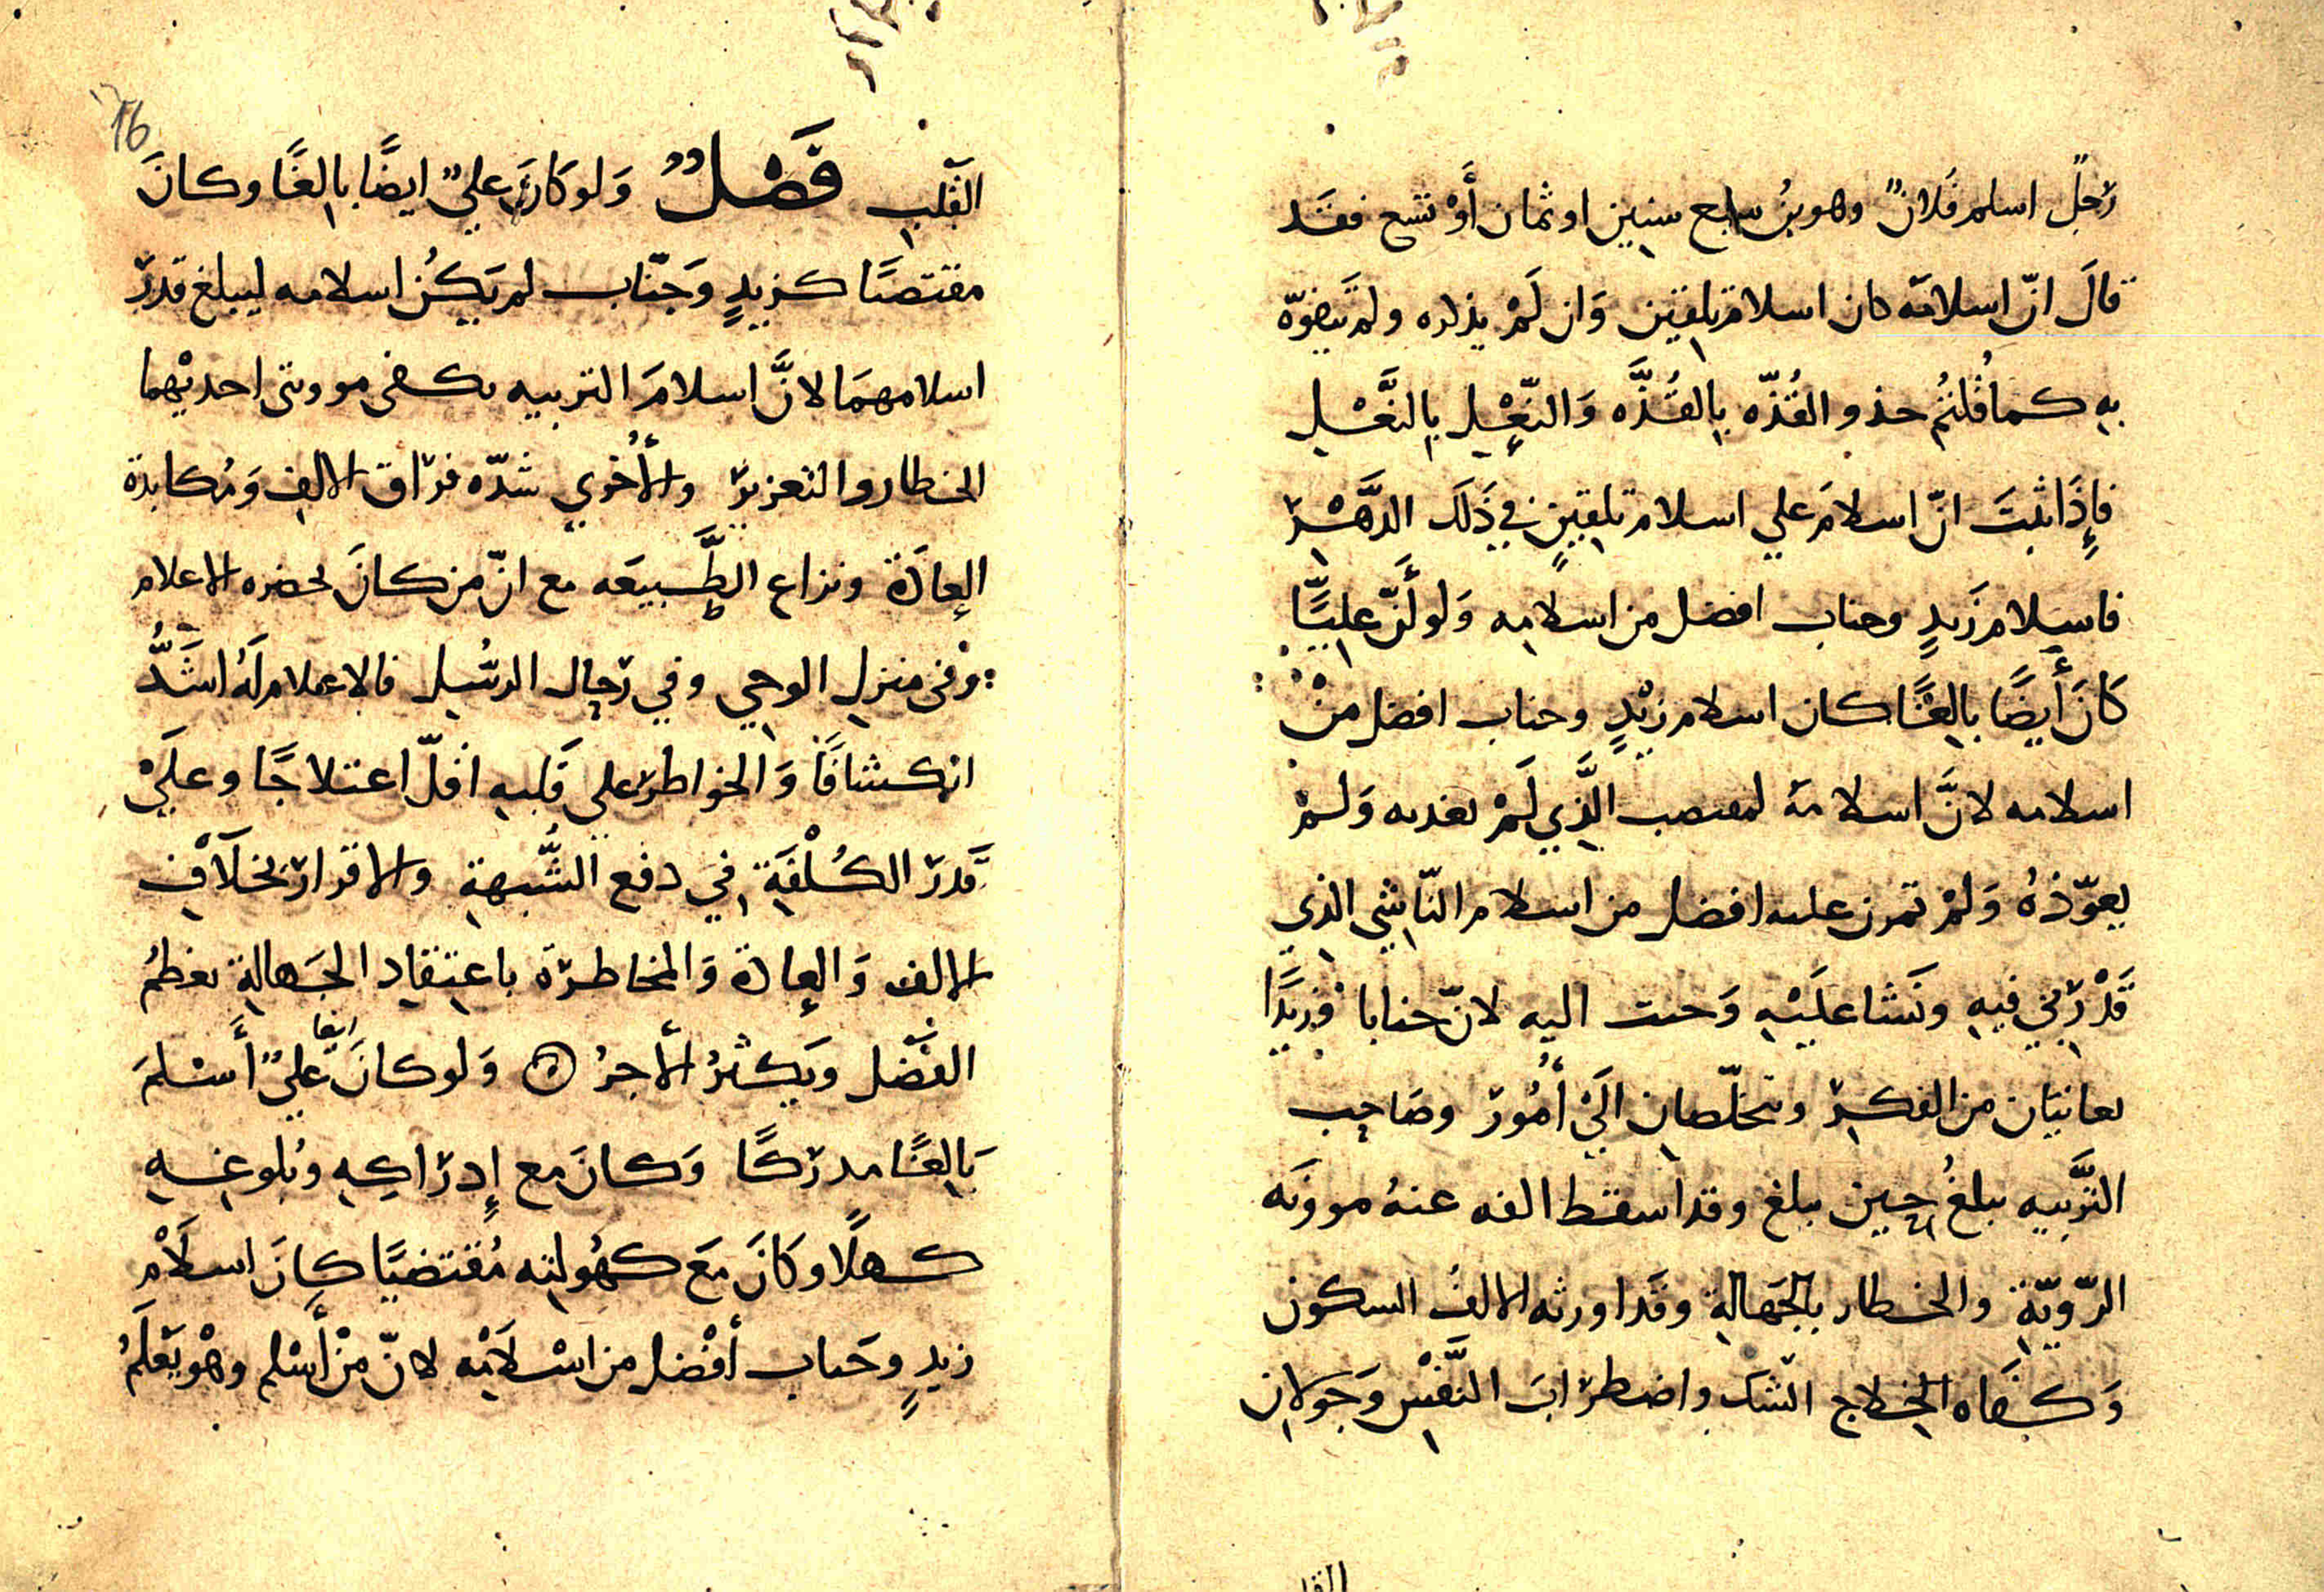 رَجلٌ اسلم فَلانٌ وهو بنُ سبع سنين او ثمان أوْ تسع فقَد
قالَ انّ اسلامَه كان اسلام تلقين وَان لَمْ يذكره ولم يَفوّه
به كما قُلتُم حذو القُذّه بِالقُذَّه وَالنّعْل بالنَّعْل
فإذَا ثبتَ انّ اسلامَ علي اسلام تلقينٍ في ذَلكَ الدَّهْر
فاسلام زَيدٍ وحباب افضل من اسلامه وَلو أنّ عليًّا
كانَ أيضًا بالغًا كان اسلام زيْدٍ وحباب افضل منْ
اسلامه لانَّ اسلامهَ المقتصب الَّذِي لَمْ يغد به وَلمْ
يعوّدْهُ وَلمْ تمرن عليه افضل من اسلام النّاشي الذي
قَدْ رُبّي فيه ونَشَا عليْه وَحبب اليه لانّ خبابا وزيدًا
يعانيَان من الفكر ويتخلّصان الَى أمُور وصَاحِب
التَّربيه يبلغُ حِين يبلغ وقد اسقط الفه عنهُ موونَه
الرّويّة والخطار بالجَهَالة وقَد اورثه الالفُ السكون
وَكفَاه الخلاج الشك واضطرابَ النَّفْس وَجَولان
القلب
القَلب فَصْلٌ وَلو كَانَ عليٌ ايضًا بالغًا وكانَ
مقتصبًا كزيدٍ وَخبّاب لم يَكُن اسلامه ليبلغ قدرَ
اسلامهمَا لانَّ اسلامَ التربيه يكفى موونتى احديْهما
الخطار والتعزير والأخْري شدّه فرَاق الالف وَمُكابدة
العادَة ونزاع الطَّبيعَه مع انّ من كانَ بحضره الاعلام
وفى منزل الوحي وفي رَجال الرسُل فالاعلام لَهُ اشَدُّ
انكشافًا وَالخواطر على قَلبه اقلّ اعتلاجًا وعلَيْ
قَدرَ الكُلْفَةِ في دفع الشُّبهة والاقرارَ بخلَافِ
الالف وَالعادة وَالمخاطرَة باعتقاد الجَهالةِ يعظمُ
الفَضْل ويَكثرُ الأجرُ وَلو كانَ ايضا عليٌ أَسْلمَ
بَالغًا مدرَكًا وَكانَ مع إدرَاكِه وبُلوغِه
كهلًا وكَانَ مَعَ كهُولته مُقتضبًا كانَ اسلَامِ
زيدٍ وخَباب أفْضل من اسْلَامْه لانّ منْ أسْلم وهْو يَعْلَمُ